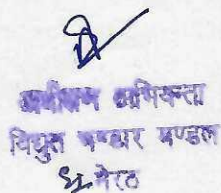 अधीक्षण अभियन्ता
विद्युत भण्डार मण्डल
मेरठ